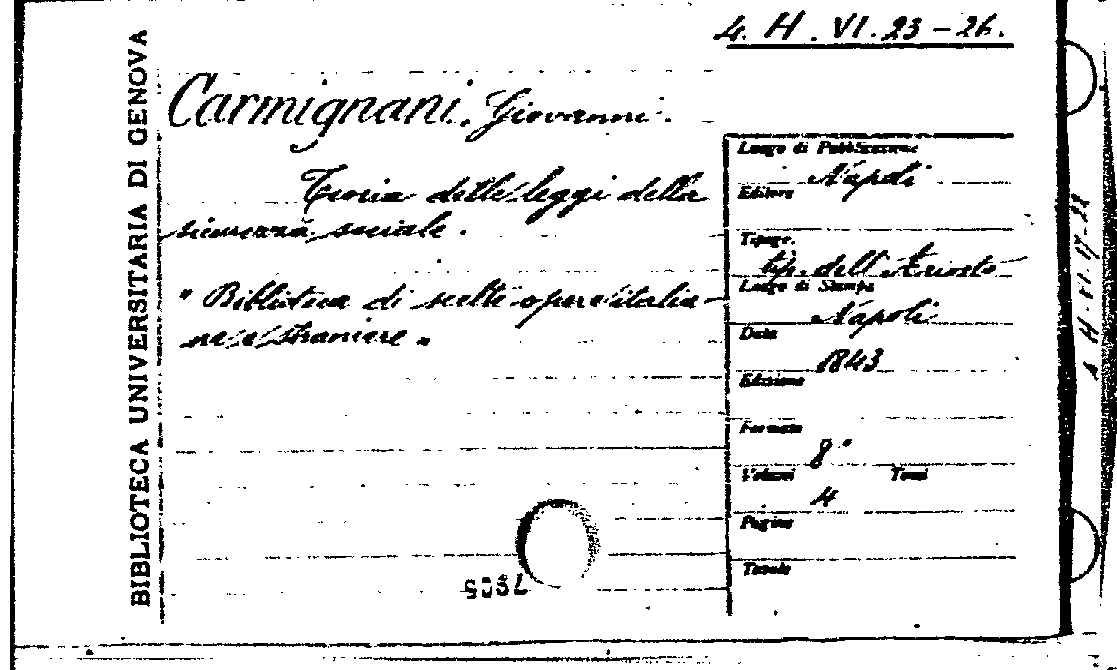 4. H. VI. 23-26.
BIBLIOTECA UNIVERSITARIA DI GENOVA
Carmignani, Giovanni.
Teoria delle leggi della
sicurezza sociale.
"Biblioteca di scelte opere italia-
ne e straniere"
Luogo di Pubblicazione
Napoli
Editore
Tipogr.
tip. dell'Ariosto
Luogo di Stampa
Napoli
Data
1843
Edizione
Formato
8°
Volumi Tomi
4
Pagine
Tavole